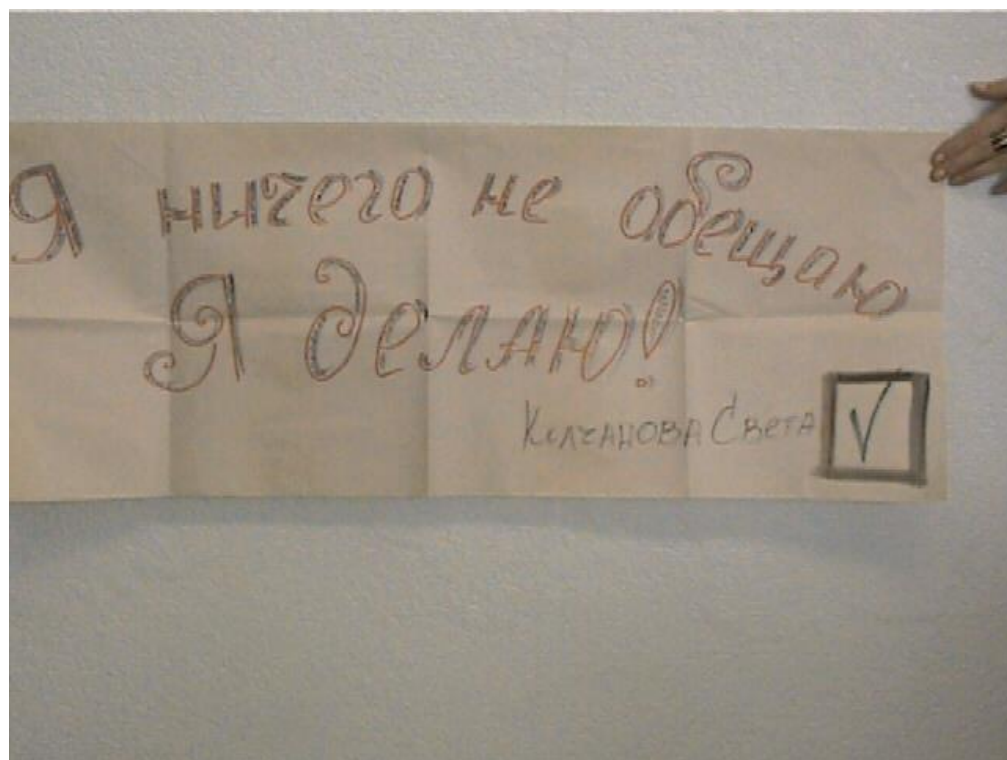 Я ничего не обещаю
Я делаю!
Колчанова Света